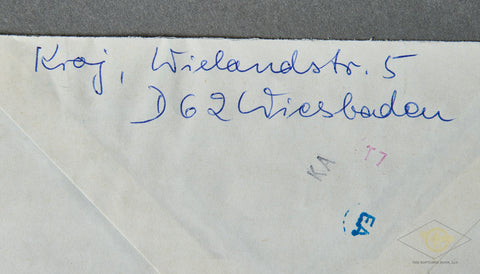 Kraj, Wielandstr. 5
D 62 Wiesbaden
KA
EA